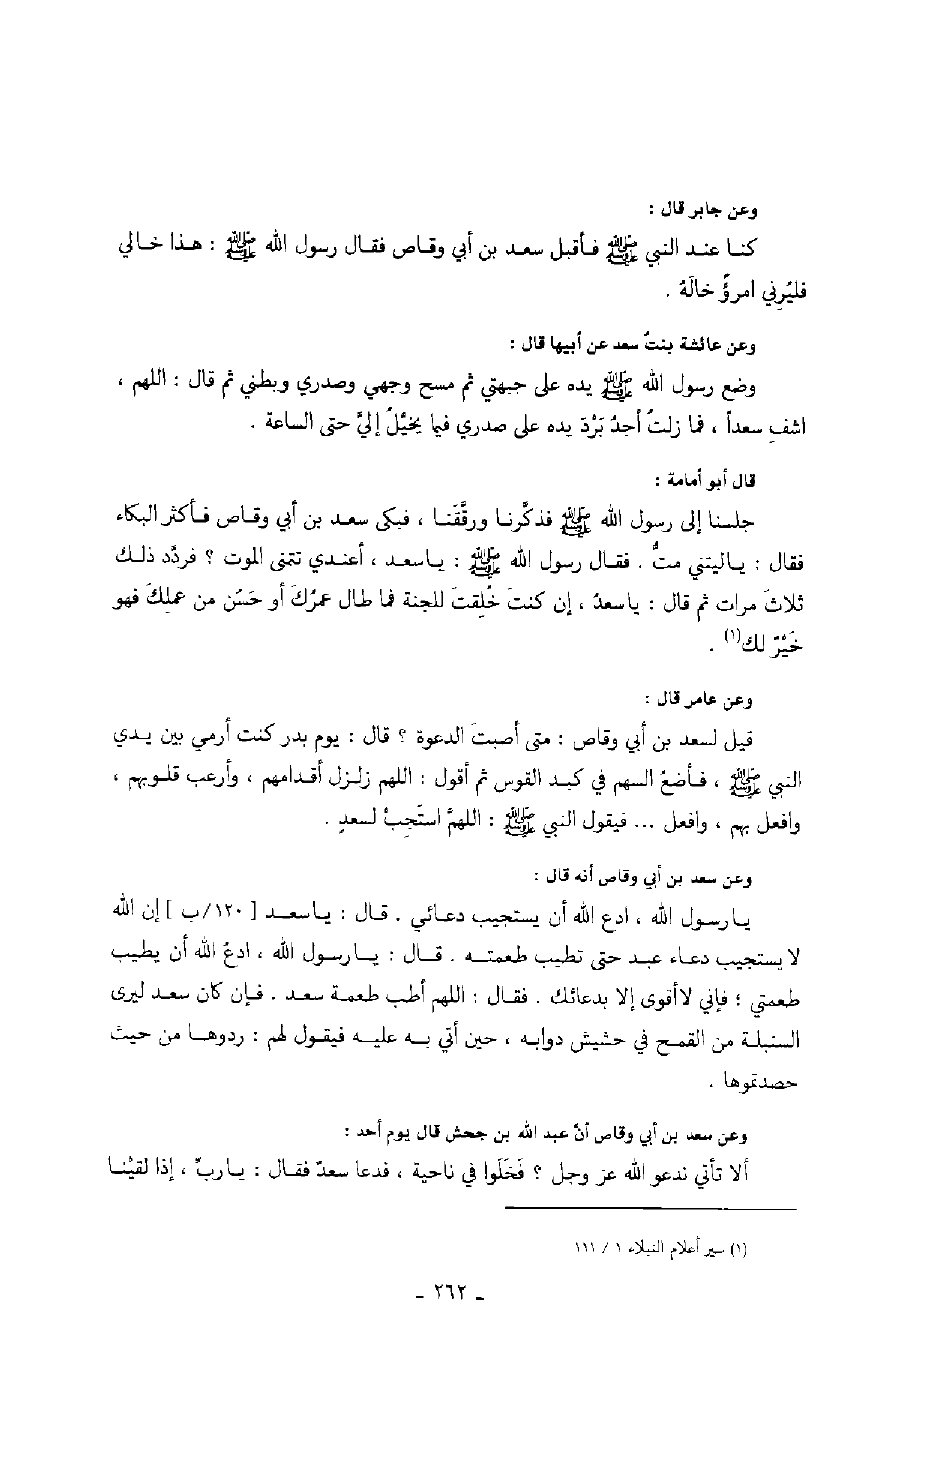 وعن جابر قال :
كنـا عنـد النبي ﷺ فـأقبل سعـد بن أبي وقـاص فقـال رسول الله ﷺ : هـذا خـالي
فليُرِني امرؤٌ خالَهُ .
وعن عائشة بنتُ سعد عن أبيها قال :
وضع رسول الله ﷺ يده على جبهتي ثم مسح وجهي وصدري وبطني ثم قال : اللهم ،
اشفِ سعداً ، فما زلتُ أجدُ بَرْدَ يده على صدري فيما يخيَّلُ إليَّ حتى الساعة .
قال أبو أمامة :
جلسنا إلى رسول الله ﷺ فذكَّرنـا ورقَّقَنـا ، فبكى سعـد بن أبي وقـاص فـأكثر البكاء
فقال : يـاليتني متُّ . فقـال رسول الله ﷺ : يـاسعـد ، أعنـدي تتمنى الموت ؟ فردَّد ذلـك
ثلاثَ مرات ثم قال : ياسعدُ ، إن كنتَ خُلِقتَ للجنة فما طال عمرُكَ أو حَسُن من عملِكَ فهو
خَيْرٌ لك(١) .
وعن عامر قال :
قيل لسعد بن أبي وقاص : متى أصبتَ الدعوة ؟ قال : يوم بدر كنت أرمي بين يـدي
النبي ﷺ ، فـأضعُ السهم في كبـد القوس ثم أقول : اللهم زلـزل أقـدامهم ، وأرعب قلـوبهم ،
وافعل بهم ، وافعل ... فيقول النبي ﷺ : اللهمَّ استَجِبْ لسعدٍ .
وعن سعد بن أبي وقاص أنه قال :
يـارسول الله ، ادع الله أن يستجيب دعـائي . قـال : يـاسعـد [ ١٢٠/ب ] إن الله
لا يستجيب دعـاء عبـد حتى تطيب طعمتـه . قـال : يـارسول الله ، ادعُ الله أن يطيب
طعمتي ؛ فإني لاأقوى إلا بدعائك . فقـال : اللهم أطب طعمـة سعـد . فـإن كان سعـد ليرى
السنبلـة من القمـح في حشيش دوابـه ، حين أُتي بـه عليـه فيقول لهم : ردوهـا من حيث
حصدتموها .
وعن سعد بن أبي وقاص أنَّ عبد الله بن جحش قال يوم أحد :
ألا تأتي ندعو الله عز وجل ؟ فَخَلَوا في ناحية ، فدعا سعدٌ فقـال : يـاربِّ ، إذا لقيْنـا
(١) سير أعلام النبلاء ١ / ١١١
- ٢٦٢ -